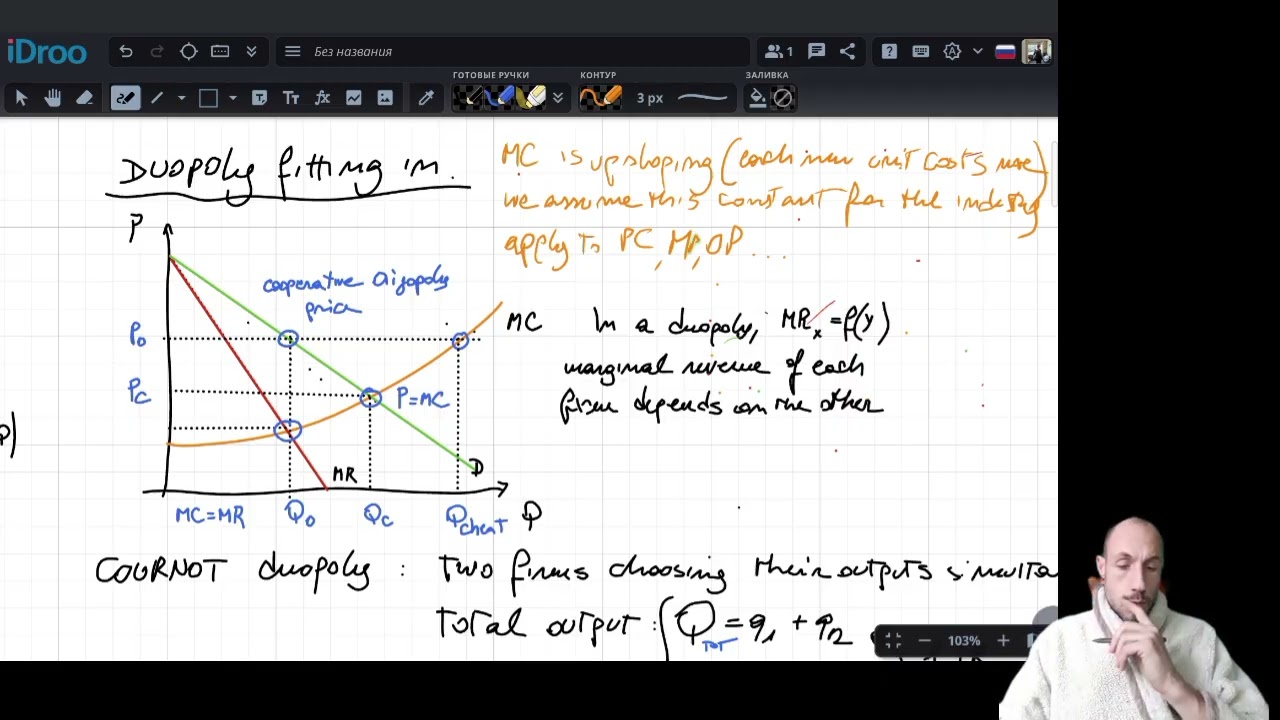 iDroo
Без названия
1
ГОТОВЫЕ РУЧКИ
КОНТУР
ЗАЛИВКА
3 px
DUOPOLY fitting in.
MC is upsloping (each new unit costs more)
we assume this constant for the industry
apply to PC, MP, OP ...
P
cooperative oligopoly
price
P₀
MC
In a duopoly, MRₓ = f(y)
marginal revenue of each
firm depends on the other
Pc
P=MC
P)
MR
D
MC=MR
Q₀
Qc
Qcheat
Q
COURNOT duopoly : Two firms choosing their outputs simulta
Total output : { Q = q₁ + q₂
TOT
103%